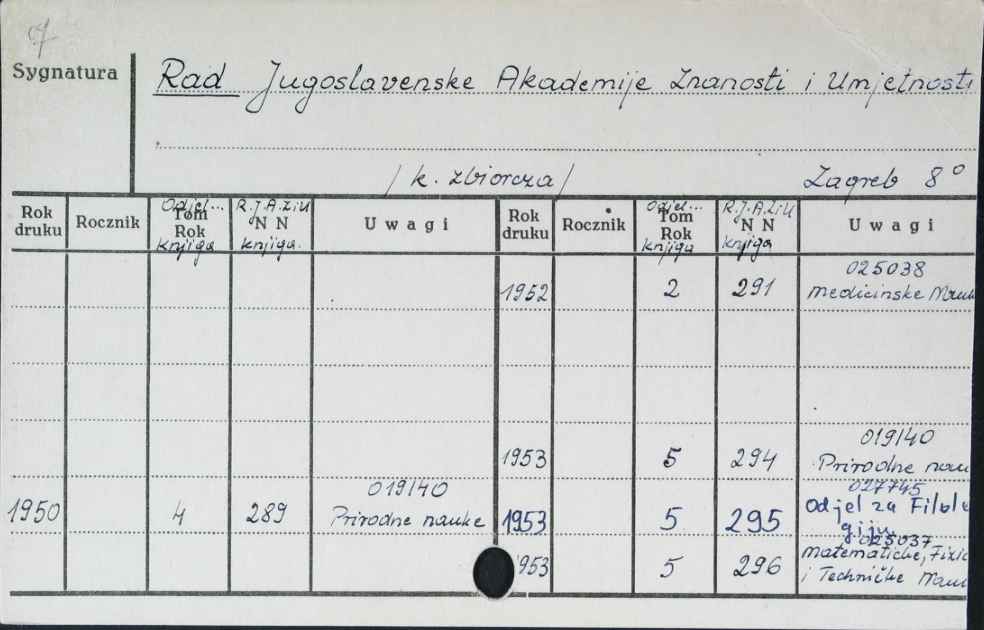 Sygnatura
Rad Jugoslavenske Akademije Znanosti i Umjetnosti
/k. zbiorcza/ Zagreb 8°
Rok druku Rocznik Odjel... Tom Rok knjiga R.J.A.Z.iU N N knjiga. Uwagi Rok druku Rocznik Odjel... Tom Rok knjiga R.J.A.Z.iU N N knjiga Uwagi
1952 2 291 025038 medicinske Nauk
1953 5 294 019140 Prirodne nau
1950 4 289 019140 Prirodne nauke 1953 5 295 027745 Odjel za Filolo giju
953 5 296 025037 matematičke, Fizič i Techničke Nau